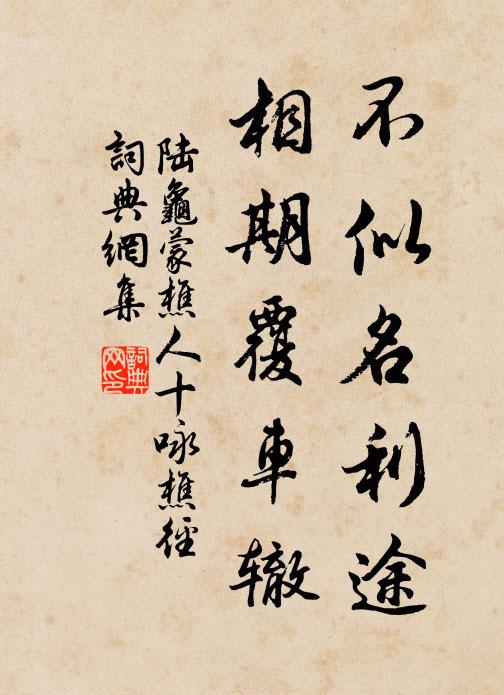 不似名利途
相期覆車辙
陆龜蒙樵人十咏樵徑
詞典網集
詞典网印